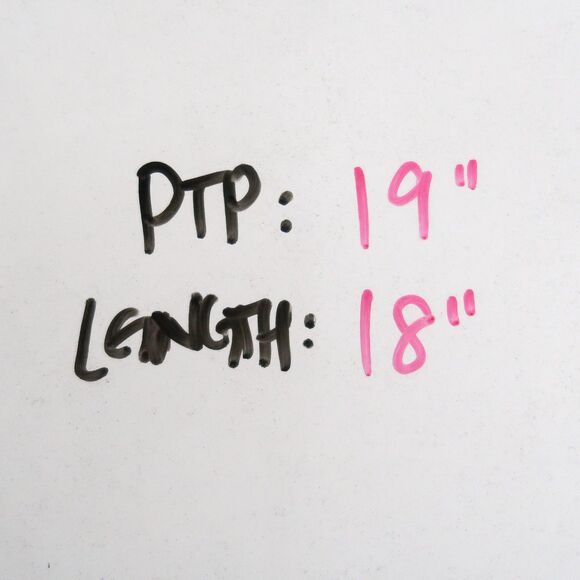 PTP: 19"
LENGTH: 18"